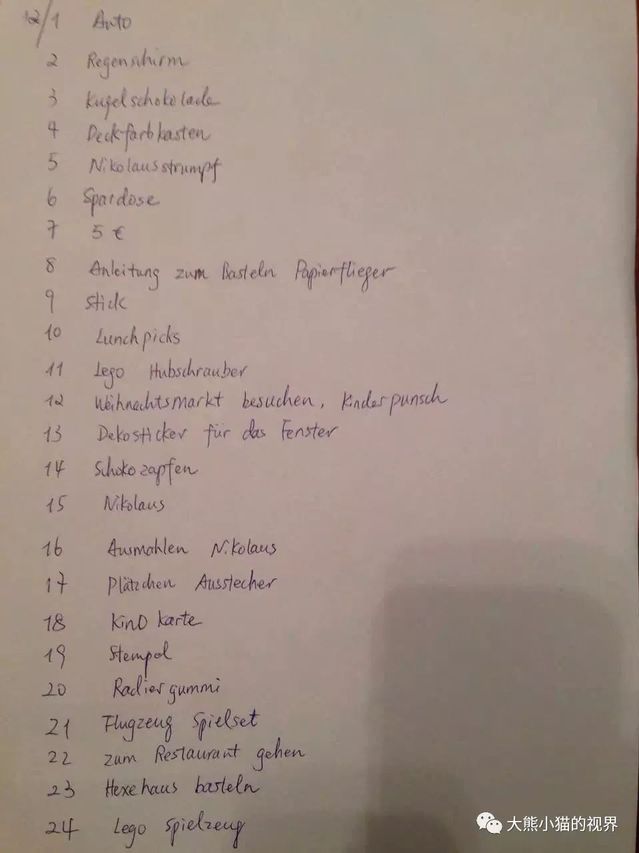 12/1 Auto
2 Regenschirm
3 Kugelschokolade
4 Deckfarbkasten
5 Nikolausstrumpf
6 Spardose
7 5 €
8 Anleitung zum Basteln Papierflieger
9 Stick
10 Lunchpicks
11 Lego Hubschrauber
12 Weihnachtsmarkt besuchen, Kinderpunsch
13 Dekosticker für das Fenster
14 Schokozapfen
15 Nikolaus
16 Ausmahlen Nikolaus
17 Plätzchen Ausstecher
18 Kino Karte
19 Stempel
20 Radiergummi
21 Flugzeug Spielset
22 zum Restaurant gehen
23 Hexehaus basteln
24 Lego Spielzeug
大熊小猫的视界